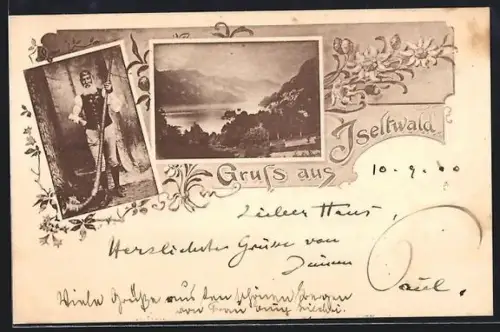 Gruss aus Iseltwald.
10.9.00
Lieber Hans,
Herzlichste Grüsse von
Deinem Paul.
Viele Grüße aus den schönen Bergen
von Frau